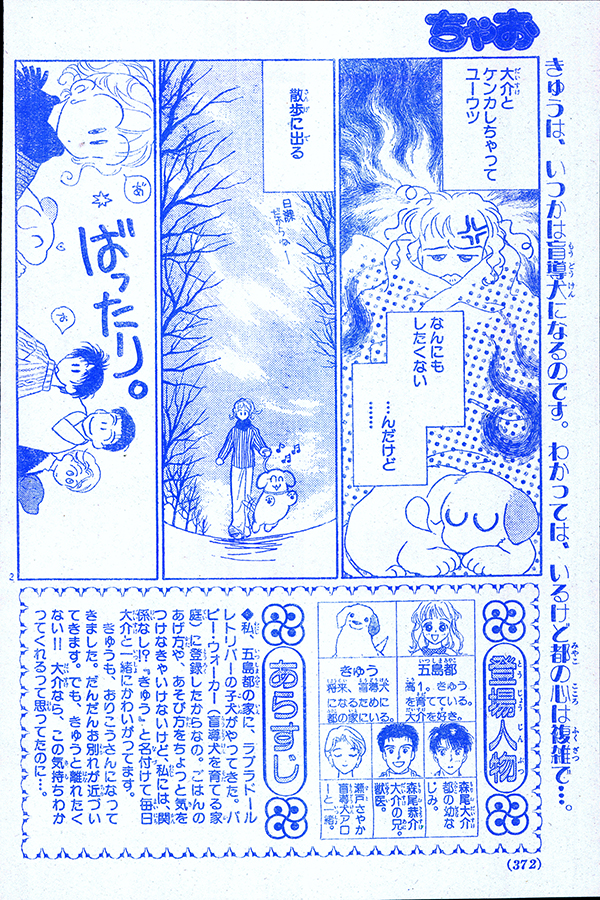 ちゃお
きゅうは、いつかは盲導犬になるのです。わかっては、いるけど都の心は複雑で…。
大介と
ケンカしちゃって
ユーウツ
なんにも
したくない
…んだけど
……
散歩に出る
日課
だからねー
ばったり。
お
お
2
登場人物
五島都
高1。きゅう
を育てている。
大介を好き。
きゅう
将来、盲導犬
になるために
都の家にいる。
森尾大介
都の幼な
じみ。
森尾恭介
大介の兄。
獣医。
瀬戸さやか
盲導犬アロ
ーと一緒。
あらすじ
◆私、五島都の家に、ラブラドール
レトリバーの子犬がやってきた。パ
ピー・ウォーカー(盲導犬を育てる家
庭)に登録したからなの。ごはんの
あげ方や、あそび方をちょっと気を
つけなきゃいけないけど、私には、関
係なし!?『きゅう』と名付けて毎日
大介と一緒にかわいがってます。
きゅうも、おりこうさんになって
きました。だんだんお別れが近づい
てきます。でも、きゅうと離れたく
ない!!大介なら、この気持ちわか
ってくれるって思ってたのに…。
(372)